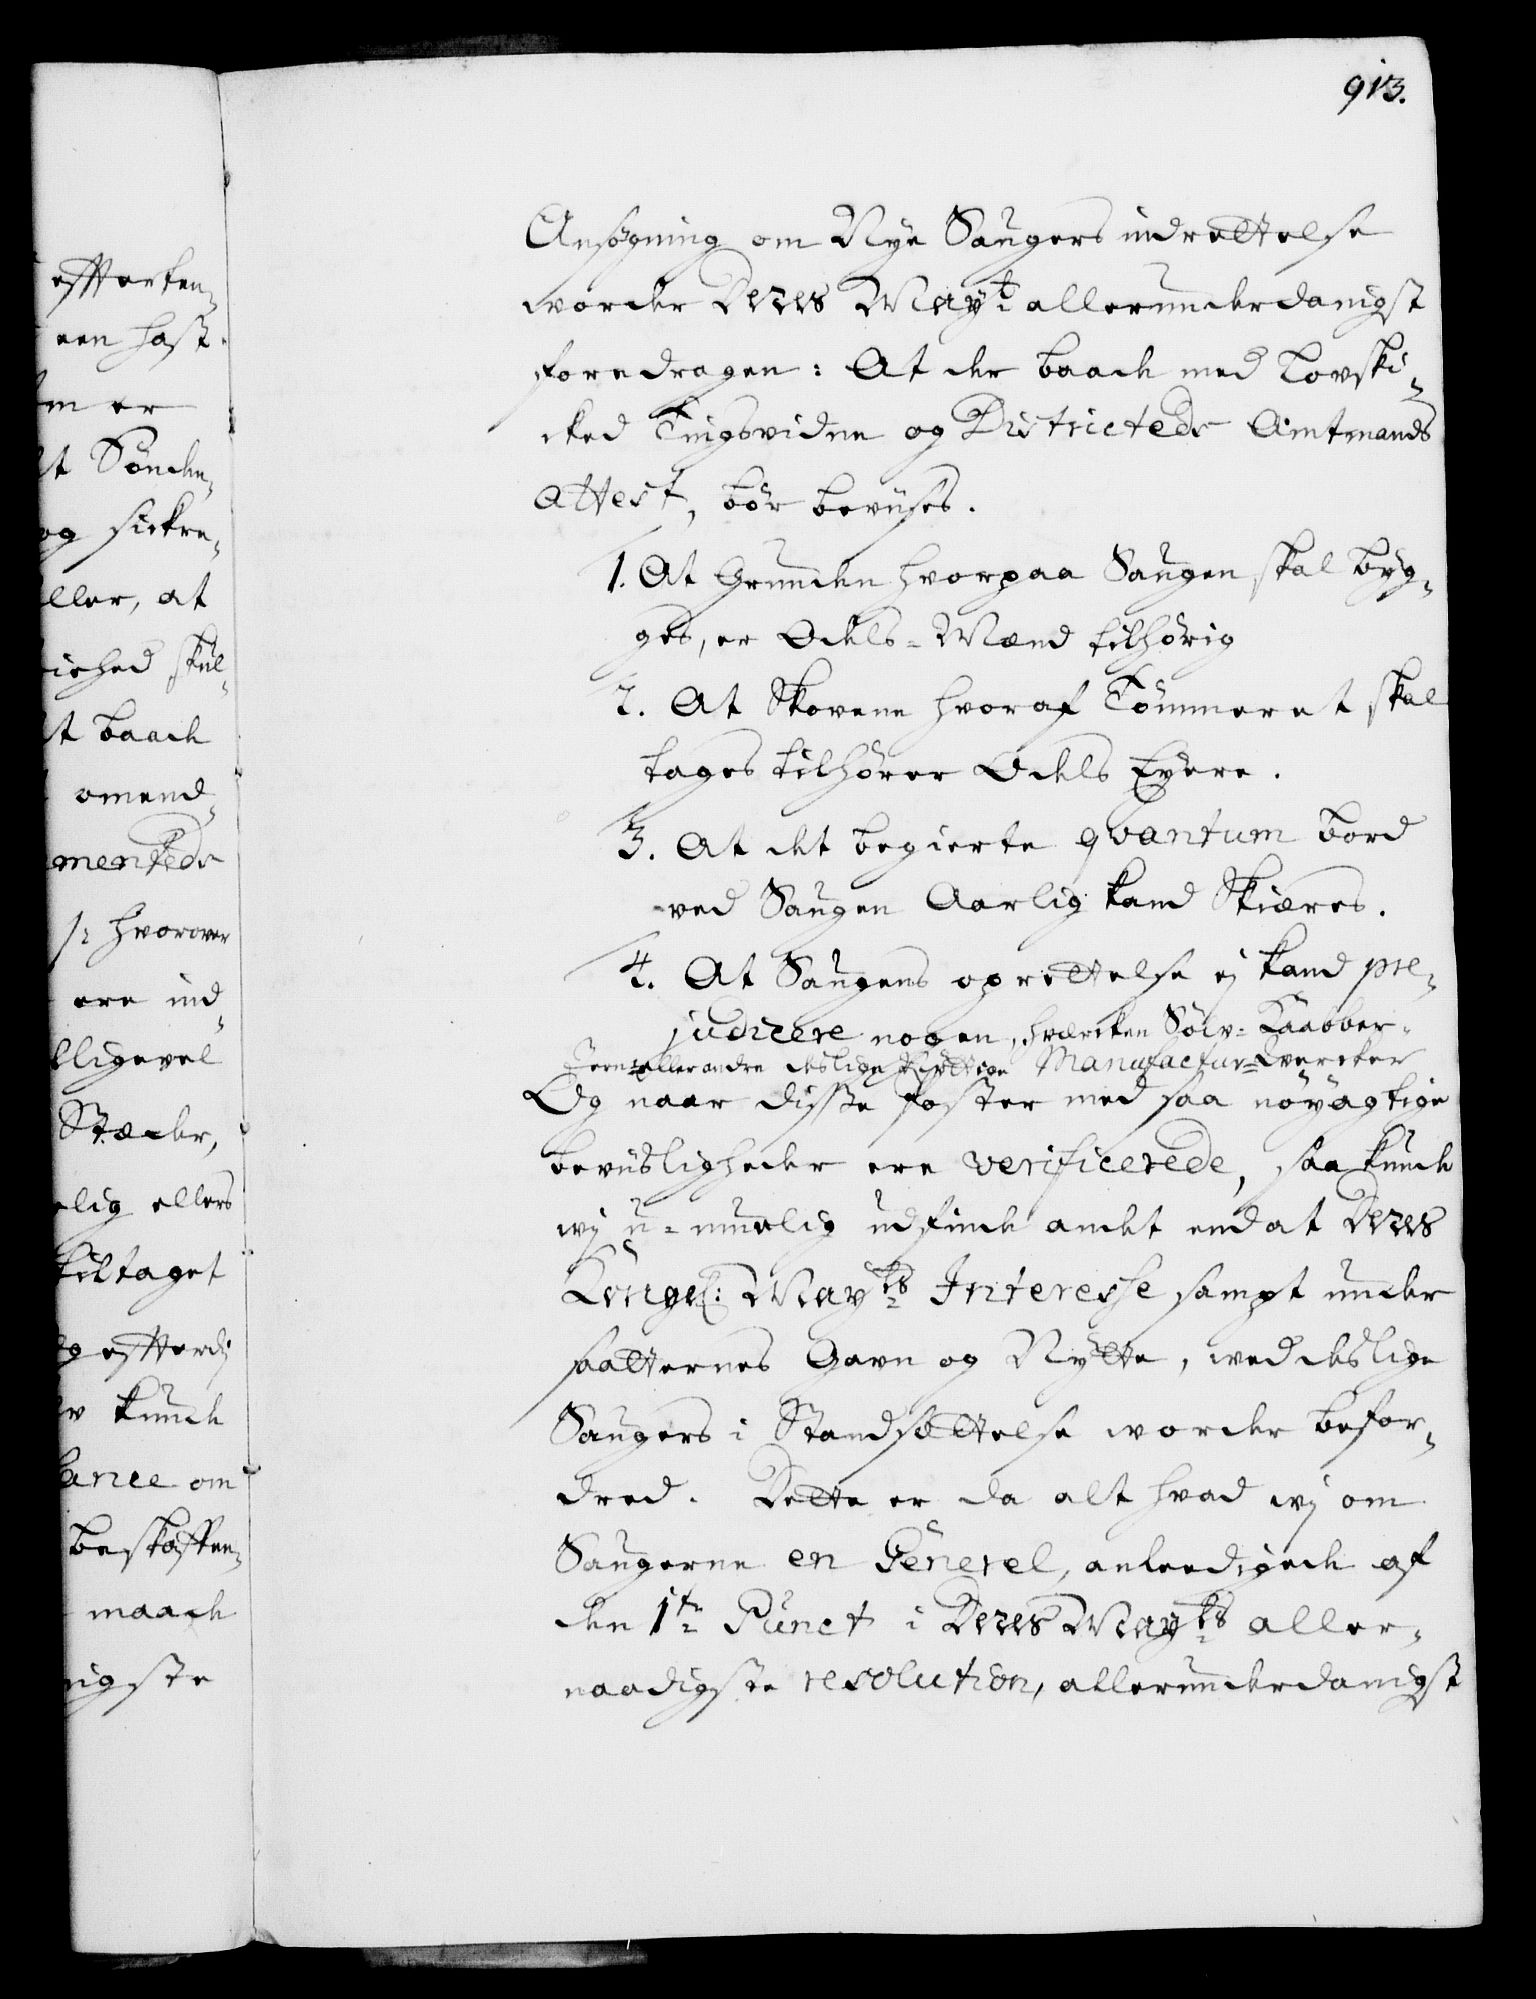 913.
Ansøgning om Nye Saugers indrettelse
worder Deres Mayt allerunderdanigst
foredragen: At der baade med Lovski¬
cked Tingsvidne og Districteds Amtmands
Attest, bør beviises.
1. At Grunden hvorpaa Saugen skal byg¬
ges, er Odels-Mænd tilhørig
2. At Skovene hvoraf Tømmeret skal
tages tilhører Odels Eyere.
3. At det begierte qvantum bord
ved Saugen Aarlig kand Skiæres.
4. At Saugens oprettelse ej kand pre¬
judicere nogen, hværcken Sølv- Kaabber-
Jern- eller andre deslige nyttige Manufactur-Wercker
Og naar disse Poster med saa nøyagtige
beviisligheder ere verificerede, saa kunde
wj u-muelig udfinde andet end at Deres
Kongel: Mayts Interesse sampt under
saatternes Gavn og Nytte, wed deslige
Saugers i Standsættelse worder befor¬
dred. Dette er da alt hvad wj om
Saugerne en General, anleedigede af
den 1te Punct i Deres Mayts aller¬
naadigste resolution, allerunderdanigst
efterken¬
een hast
er
Sønden¬
og sickre¬
eller, at
skul¬
baade
omend¬
menteds
hvorover
ere ind¬
ligevel
Stæder,
lig ellers
tiltaget
efterdj
kunde
om
beskaffen¬
maade
nigste